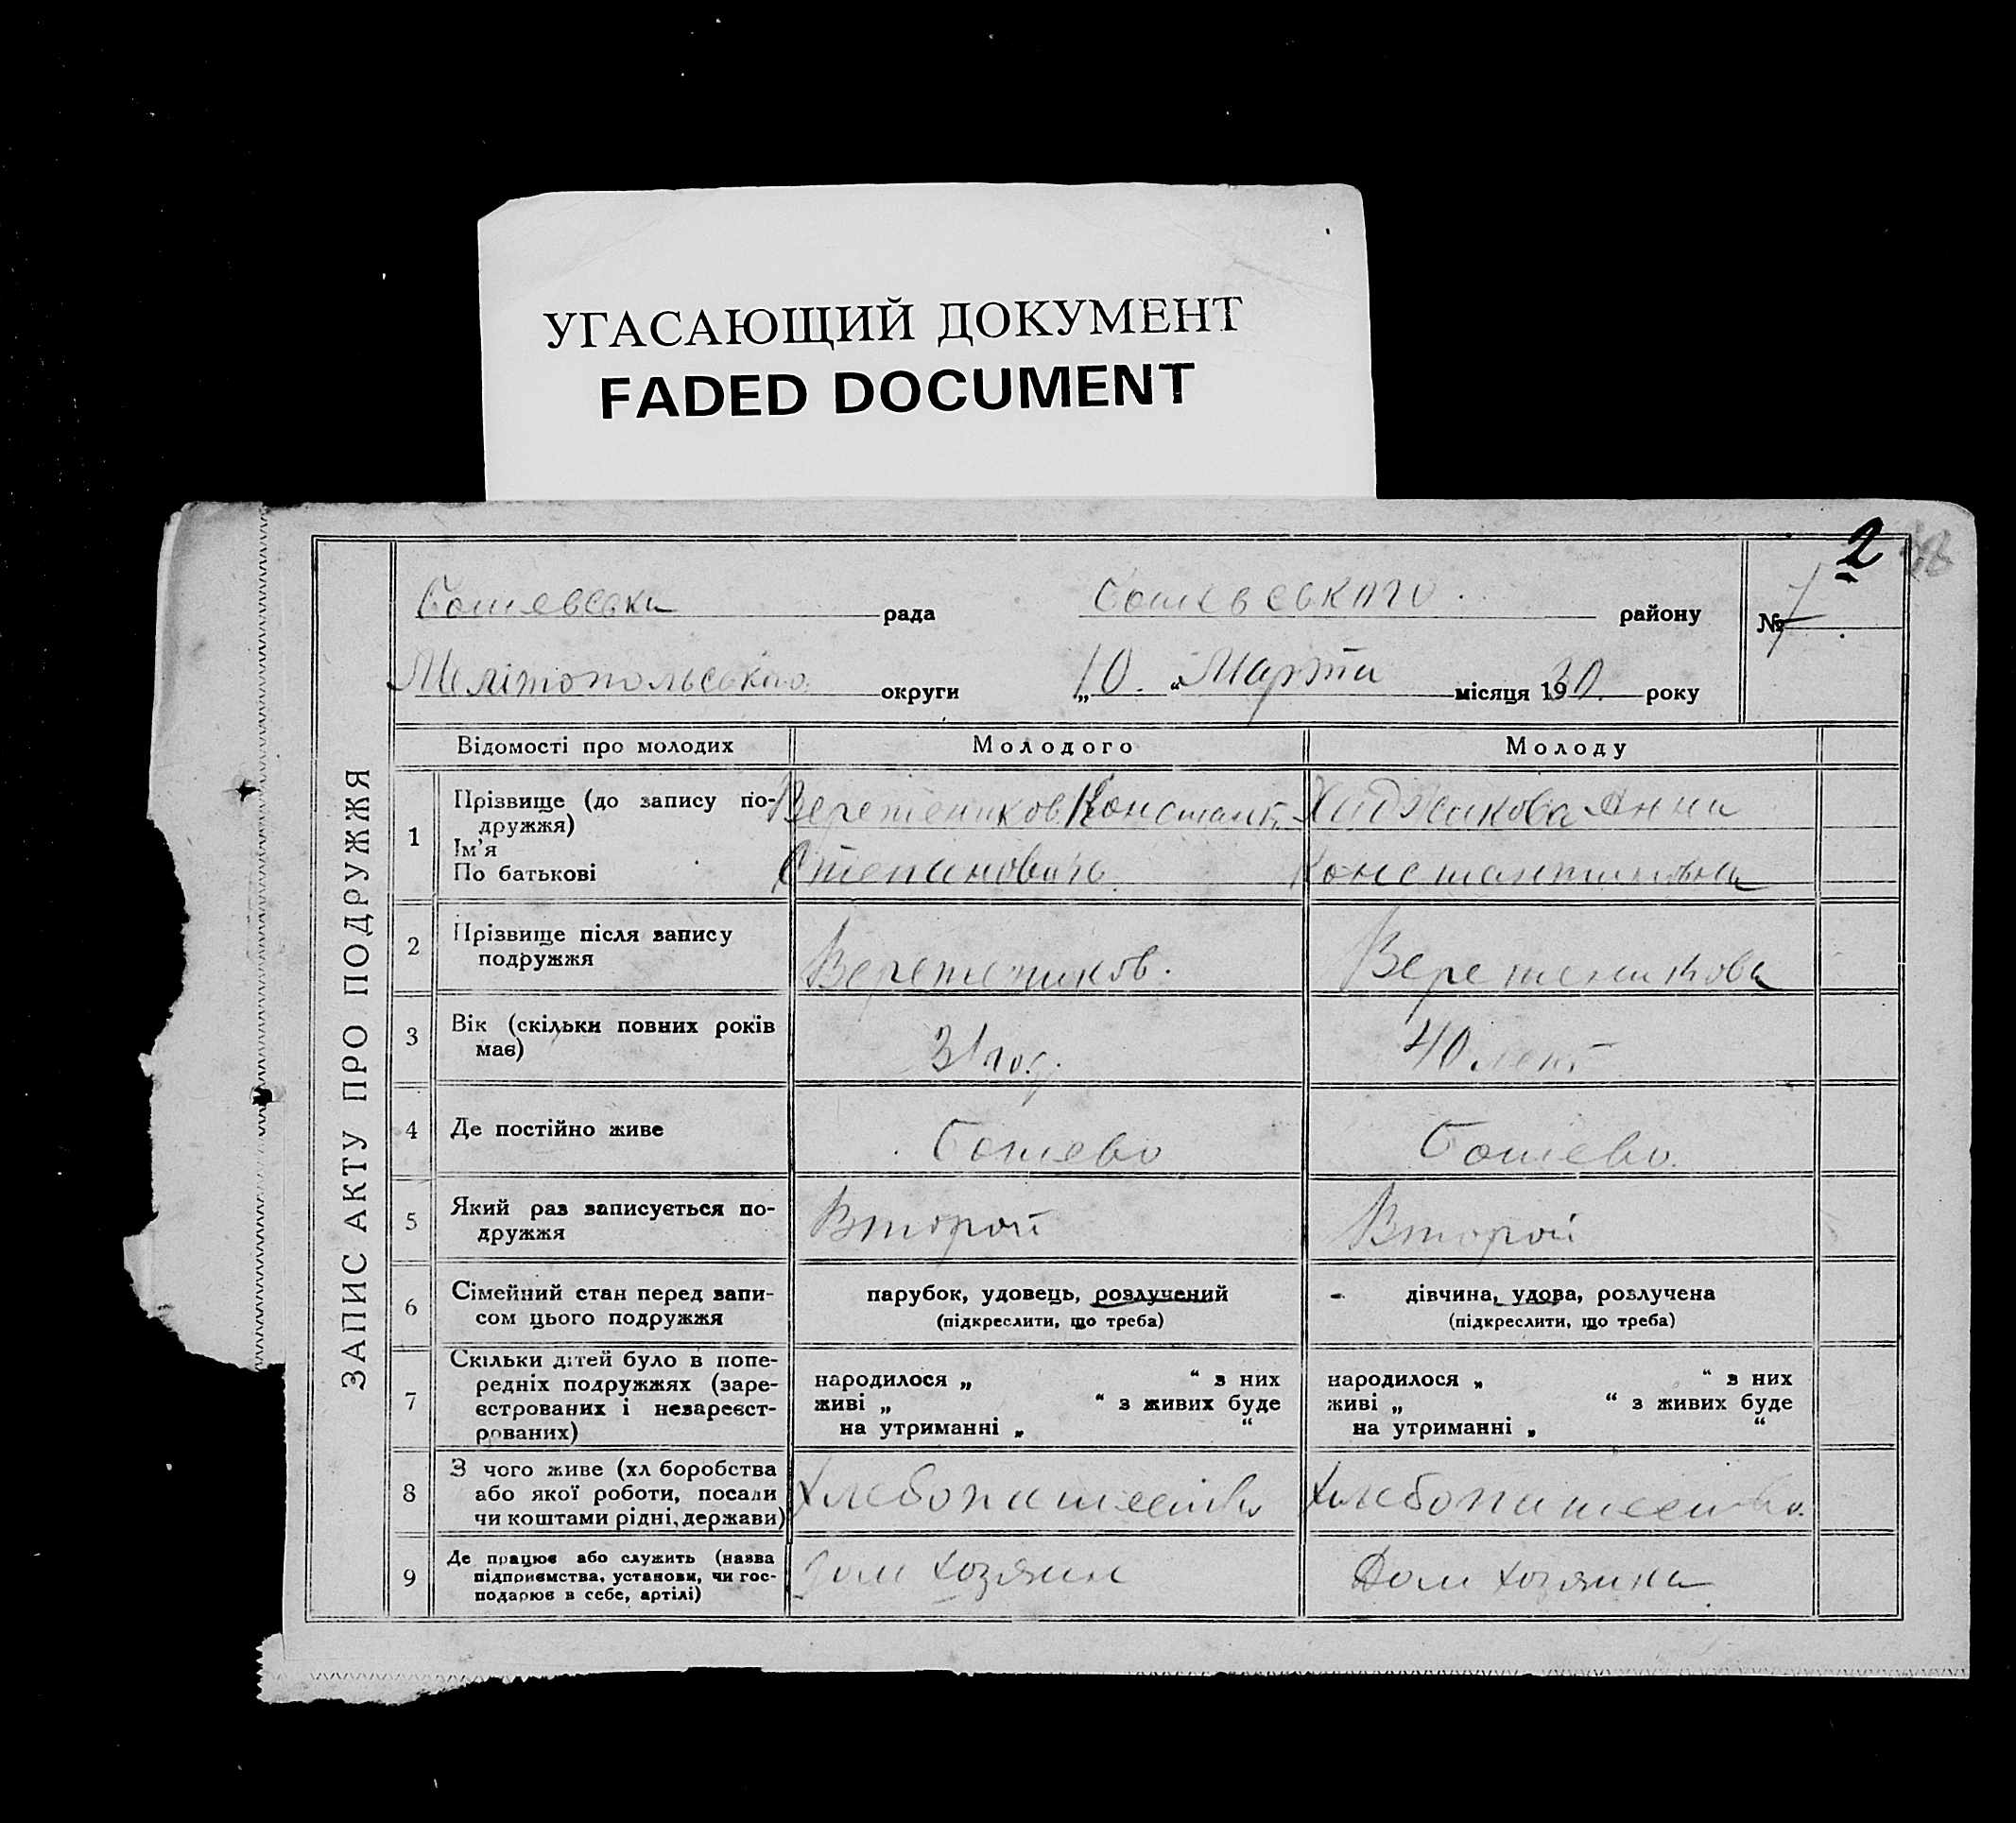 УГАСАЮЩИЙ ДОКУМЕНТ
FADED DOCUMENT
2
ЗАПИС АКТУ ПРО ПОДРУЖЖЯ
Ботевська рада Ботевського району № 7
Мелітопольського округи „10.“ Марта місяця 1930. року
Відомості про молодих Молодого Молоду
1 Прізвище (до запису подружжя) Веретеников Констант. Хаджикова Анна
Ім'я
По батькові Степанович Константиновна
2 Прізвище після запису
подружжя Веретеников. Веретеникова
3 Вік (скільки повних років
має) 31 год. 40 лет
4 Де постійно живе Ботево Ботево
5 Який раз записується по-
дружжя Второй Второй
6 Сімейний стан перед запи-
сом цього подружжя
парубок, удовець, розлучений
(підкреслити, що треба)
дівчина, удова, розлучена
(підкреслити, що треба)
7 Скільки дітей було в попе-
редніх подружжях (заре-
єстрованих і незареєст-
рованих)
народилося „ “ з них
живі „ “ з живих буде
на утриманні „ “
народилося „ “ з них
живі „ “ з живих буде
на утриманні „ “
8 З чого живе (хл боробства
або якої роботи, посади
чи коштами рідні, держави)
Хлебопашество Хлебопашество.
9 Де працює або служить (назва
підприємства, установи, чи гос-
подарює в себе, артілі)
Дом хозяин Дом хозяина